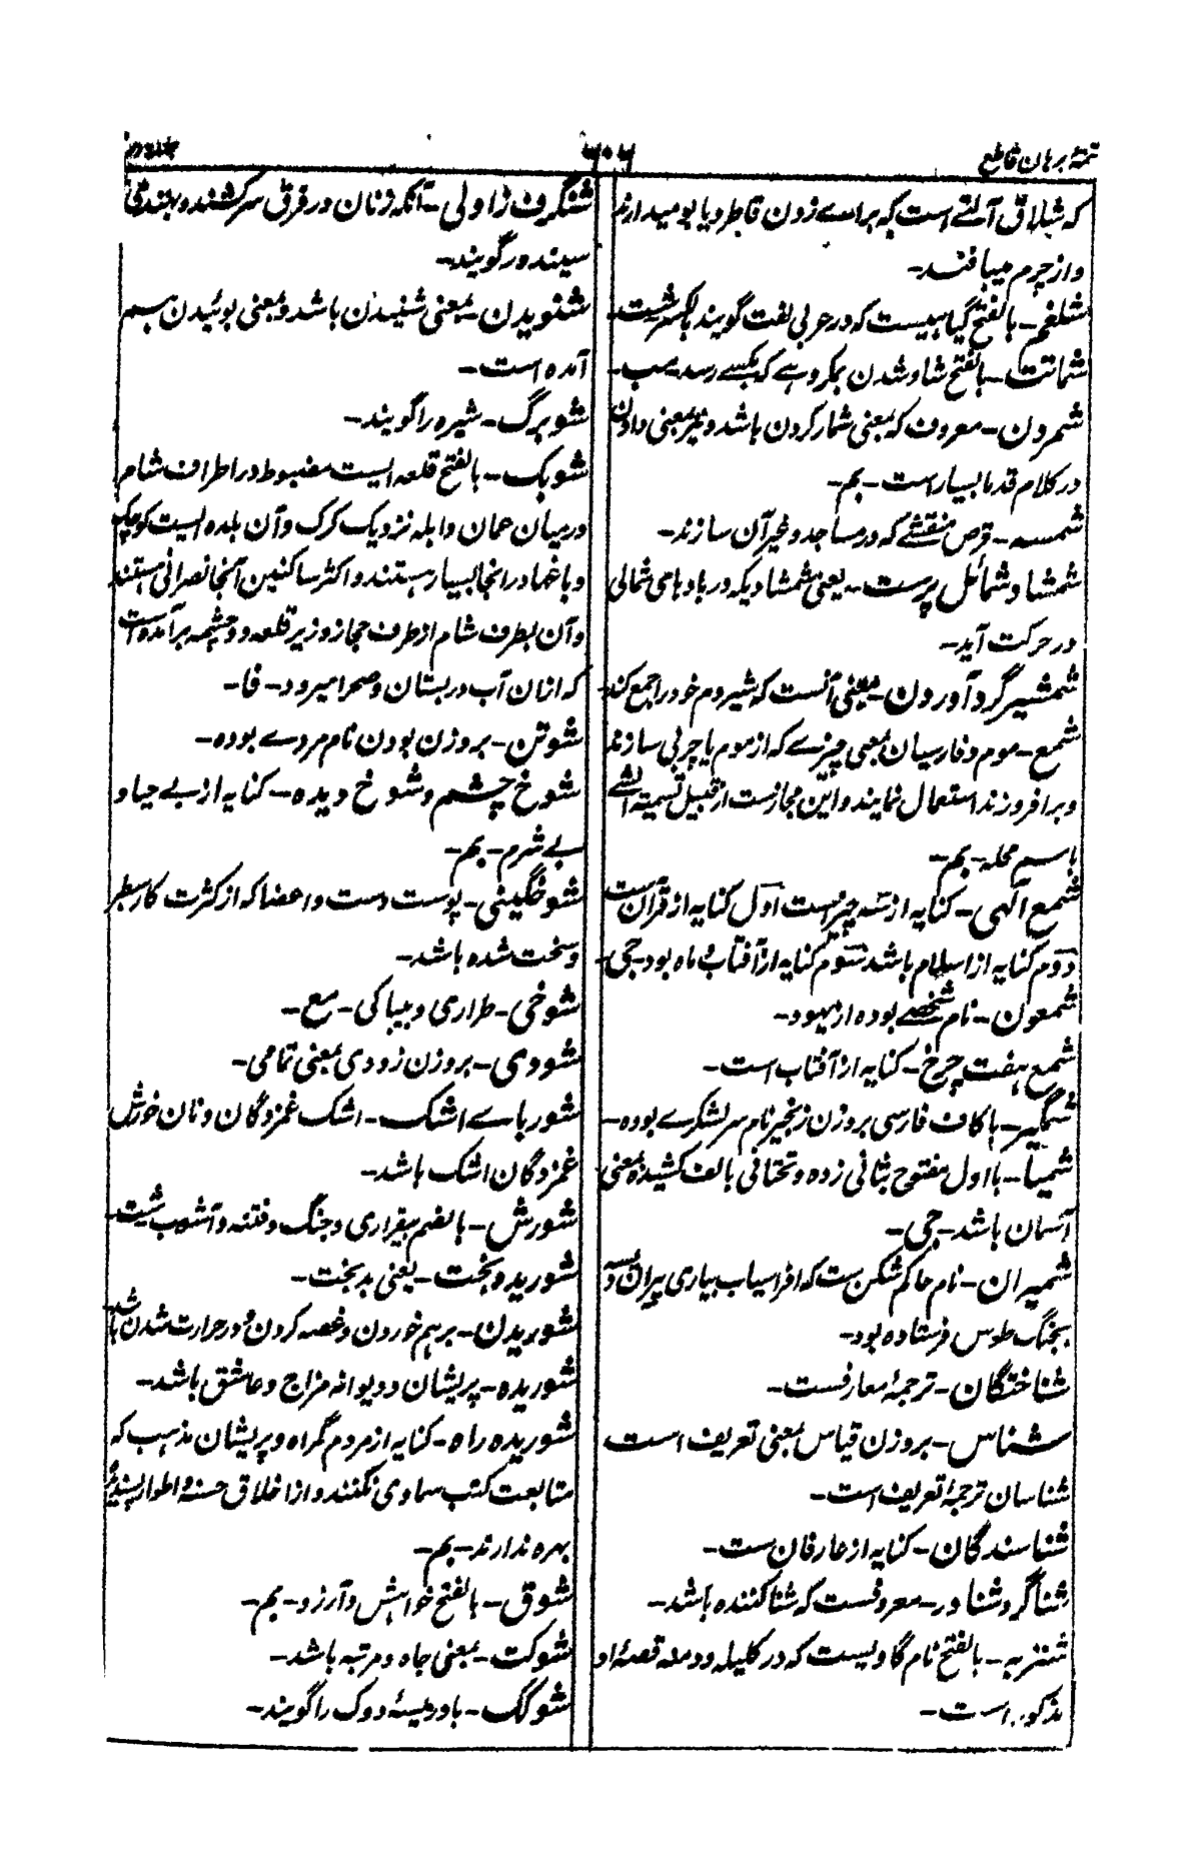 تتمهٔ برهان قاطع
۶۰۶
جلد دوم
که شلاق آلتے است که براے زدن قاطر و یابو میدارند
و از چرم میبافند-
شلغم- بالفتح گیاهیست که در عربی لفت گویند بالکسر شت-
شماتت- بالفتح شاد شدن بمکروہے که بکسے رسد- مب-
شمردن- معروف که بمعنی شمار کردن باشد و نیز بمعنی دادن
در کلام قدما بسیار است- بم-
شمسه- قرص منقشے که در مساجد و غیر آن سازند-
شمشاد شمائل پرست- یعنی شمشادیکه در بادهای شمالی
در حرکت آید-
شمشیر گرد آوردن- بمعنی آنست که شیر دم خود را جمع کند-
شمع- موم و فارسیان بمعنی چیزے که از موم یا چربی سازند
و برافروزند استعمال نمایند و این مجازست از قبیل تسمیة الشئے
باسم محله- بم-
شمع آلهی- کنایه از سه چیز است اول کنایه از قرآن است
دوم کنایه از اسلام باشد سوم کنایه از آفتاب و ماه بود- جی-
شمعون- نام شخصے بوده از یهود-
شمع هفت چرخ- کنایه از آفتاب است-
شمگیر- با کاف فارسی بروزن زنجیر نام سر لشکرے بوده-
شمیا- با اول مفتوح بثانی زده و تحتانی بالف کشیده بمعنی
آسمان باشد- جی-
شمیران- نام حاکم شکن ست که افراسیاب بیاری پیران ویسه
بجنگ طوس فرستاده بود-
شناختگان- ترجمهٔ معارفست-
شناس- بروزن قیاس بمعنی تعریف است
شناسان ترجمهٔ تعریف است-
شناسندگان- کنایه از عارفان ست-
شناگر و شناور- معروفست که شنا کننده باشد-
شنزبه- بالفتح نام گاویست که در کلیله و دمنه قصهٔ او
مذکور است-
شنگرف زاولی- آنکه زنان در فرق سر کشند و بهندی
سیندور گویند-
شنویدن- بمعنی شنیدن باشد و بمعنی بوئیدن هم
آمده است-
شوبرگ- شیره را گویند-
شوبک- بالفتح قلعه ایست مضبوط در اطراف شام
در میان عمان و ابله نزدیک کرک و آن بلده ایست کوچک
و باغها در انجا بسیار هستند و اکثر ساکنین آنجا نصرانی هستند
و آن بطرف شام از طرف حجاز و زیر قلعه دو چشمه برآمده است
که ازان آب در بستان و صحرا میرود- فا-
شوتن- بروزن بودن نام مردے بوده-
شوخ چشم و شوخ دیده- کنایه از بے حیا و
بے شرم- بم-
شوخگینی- پوست دست و اعضا که از کثرت کار سطبر
و سخت شده باشد-
شوخی- طراری و بیباکی- مع-
شودی- بروزن زودی بمعنی تمامی-
شورباے اشک- اشک غمزدگان و نان خورش
غمزدگان اشک باشد-
شورش- بالضم بیقراری و جنگ و فتنه و آشوب شت-
شوریده بخت- یعنی بدبخت-
شوریدن- برهم خوردن و غصه کردن و در حرارت شدن باشد
شوریده- پریشان و دیوانه مزاج و عاشق باشد-
شوریده راه- کنایه از مردم گمراه و پریشان مذهب که
متابعت کتب سماوی نکنند و از اخلاق حسنه و اطوار پسندیده
بهره ندارند- بم-
شوق- بالفتح خواهش و آرزو- بم-
شوکت- بمعنی جاه و مرتبه باشد-
شوکک- بادریسهٔ دوک را گویند-